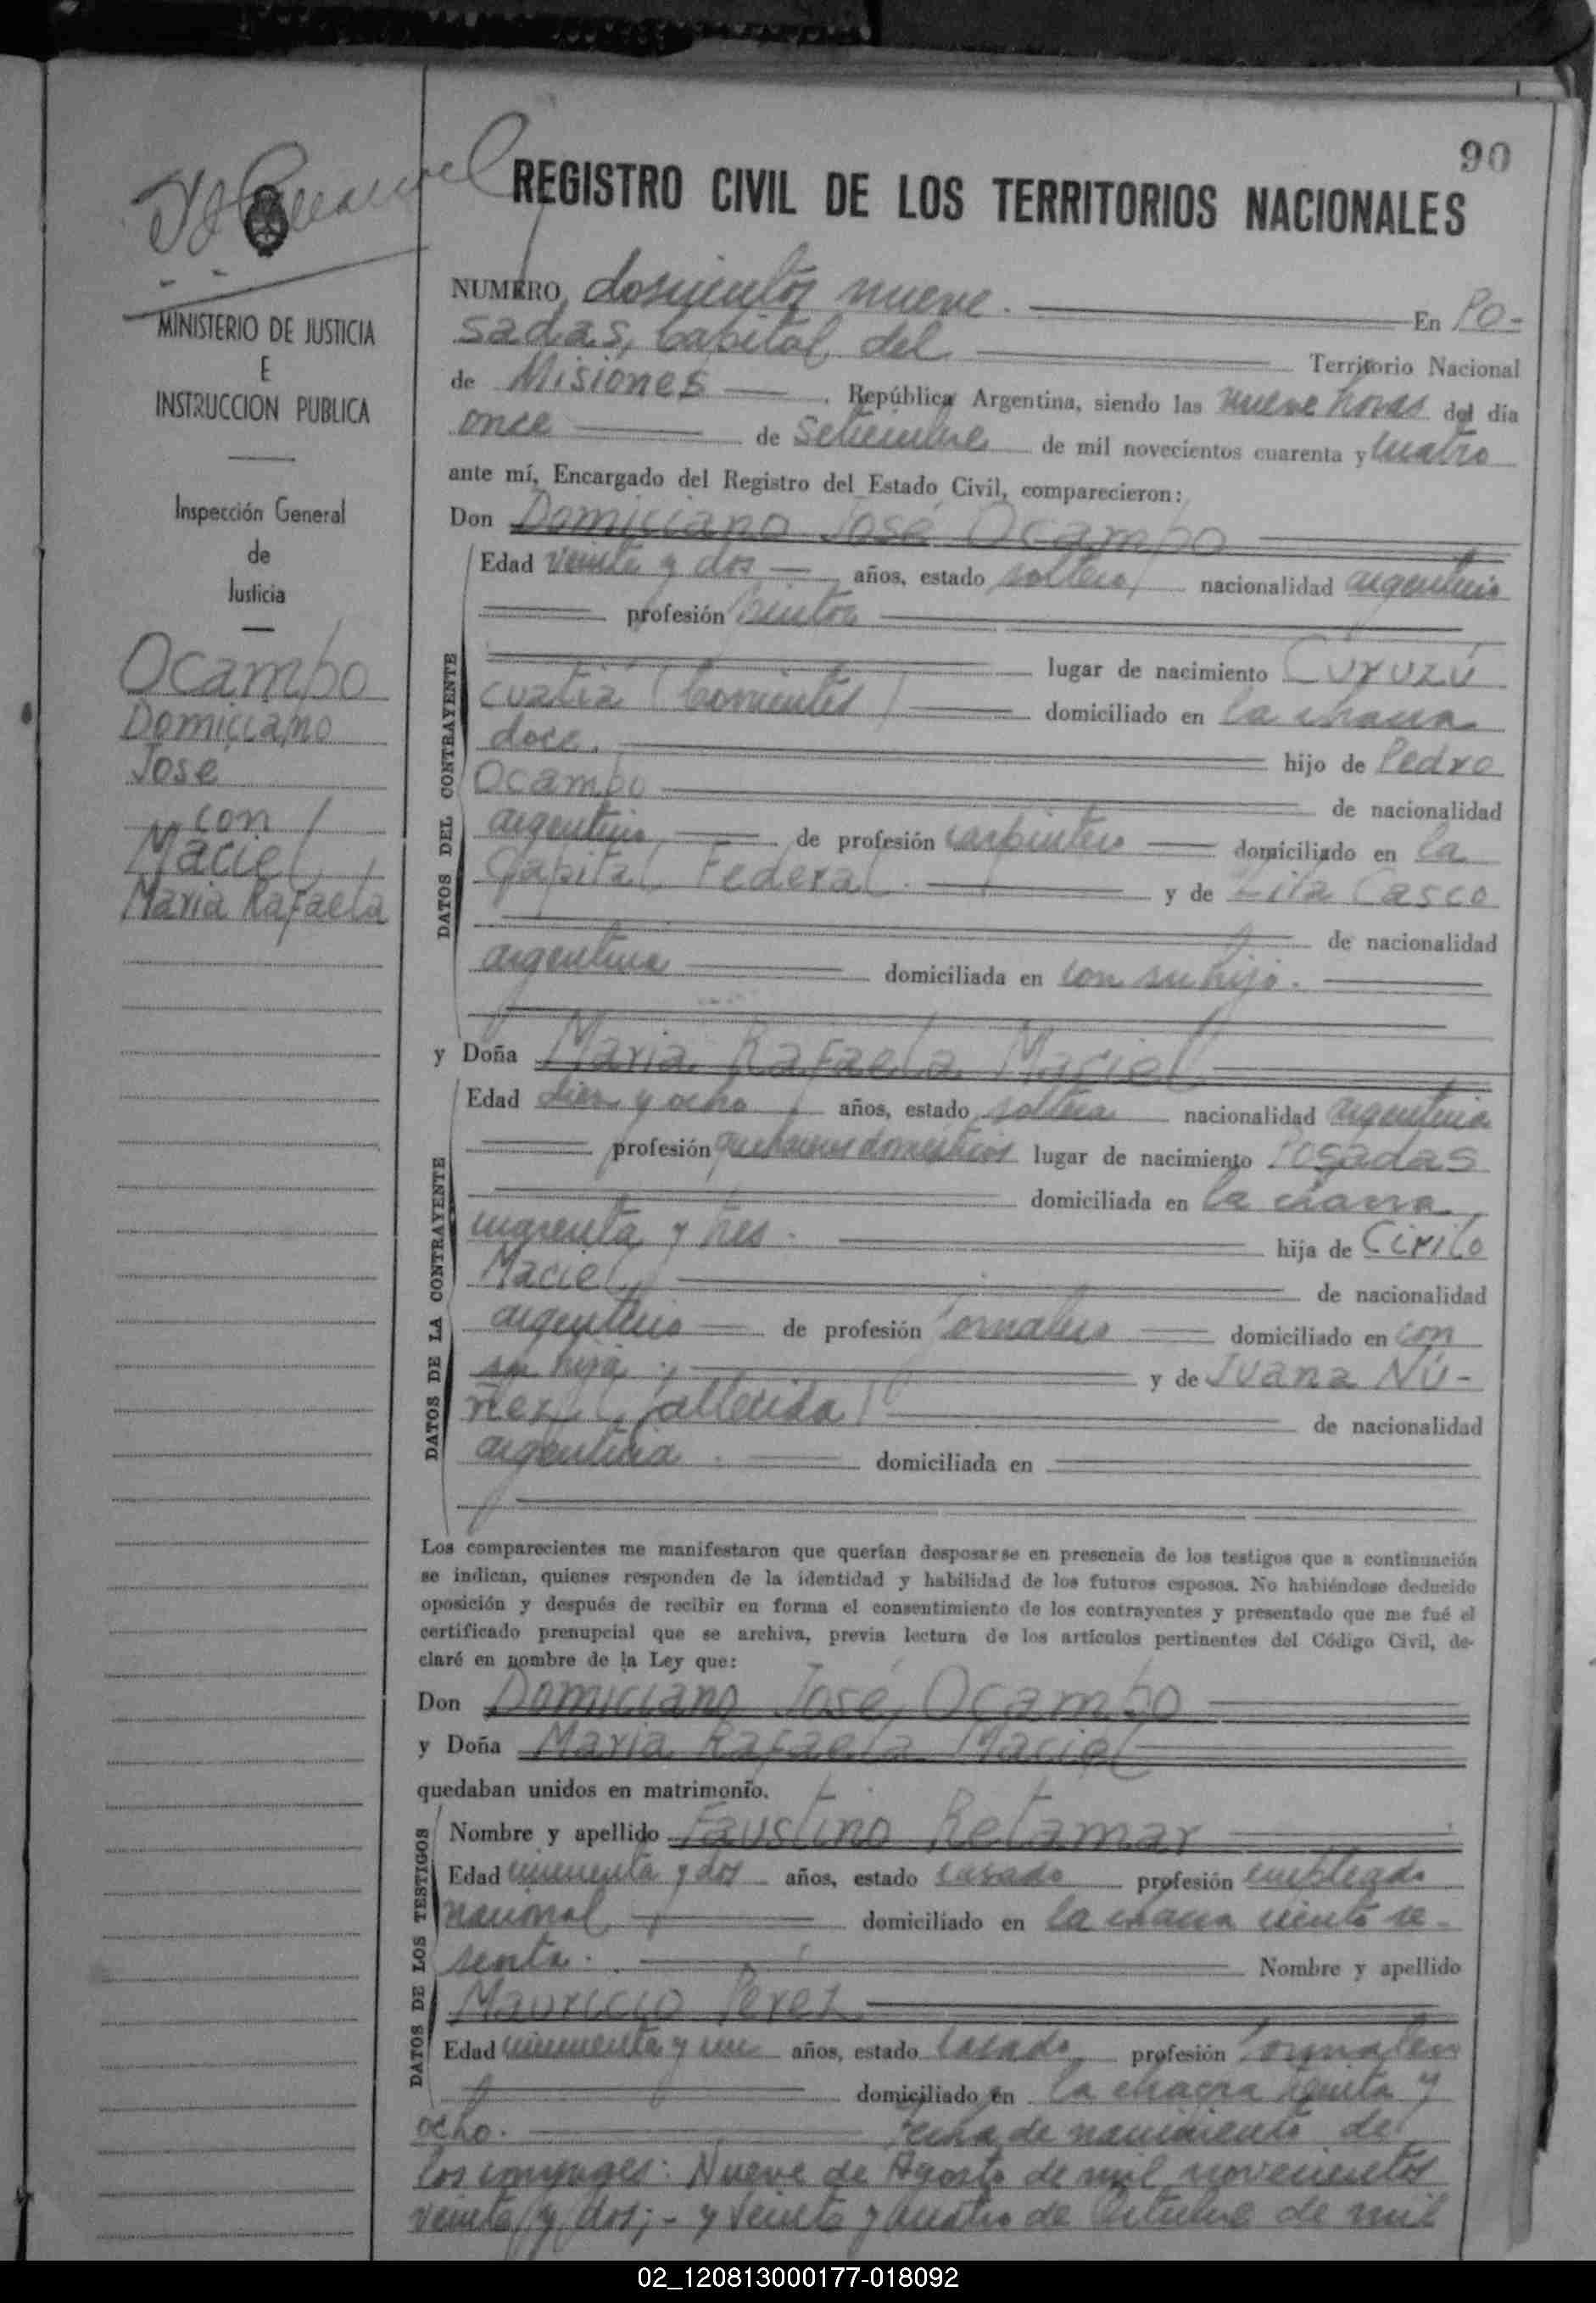 90
REGISTRO CIVIL DE LOS TERRITORIOS NACIONALES
MINISTERIO DE JUSTICIA
E
INSTRUCCION PUBLICA
Inspección General
de
Justicia
Ocampo
Domiciano
José
con
Maciel
Maria Rafaela
NUMERO doscientos nueve. En Po-
sadas, Capital del Territorio Nacional
de Misiones, República Argentina, siendo las nueve horas del día
once de Setiembre de mil novecientos cuarenta y cuatro
ante mí, Encargado del Registro del Estado Civil, comparecieron:
Don Domiciano José Ocampo
DATOS DEL CONTRAYENTE
Edad veinte y dos años, estado soltero, nacionalidad argentino
profesión pintor
lugar de nacimiento Curuzú
cuatiá (Corrientes) domiciliado en la chacra
doce. hijo de Pedro
Ocampo de nacionalidad
argentino de profesión carpintero domiciliado en la
Capital Federal. y de Casco
de nacionalidad
argentina domiciliada en con su hijo.
y Doña Maria Rafaela Maciel
DATOS DE LA CONTRAYENTE
Edad diez y ocho años, estado soltera nacionalidad argentina
profesión quehaceres domésticos lugar de nacimiento Posadas
domiciliada en la chacra
cuarenta y tres. hija de Cirilo
Maciel de nacionalidad
argentino de profesión jornalero domiciliado en con
su hija; y de Juana Nú-
ñez (fallecida) de nacionalidad
argentina. domiciliada en
Los comparecientes me manifestaron que querían desposarse en presencia de los testigos que a continuación
se indican, quienes responden de la identidad y habilidad de los futuros esposos. No habiéndose deducido
oposición y después de recibir en forma el consentimiento de los contrayentes y presentado que me fué el
certificado prenupcial que se archiva, previa lectura de los artículos pertinentes del Código Civil, de-
claré en nombre de la Ley que:
Don Domiciano José Ocampo
y Doña Maria Rafaela Maciel
quedaban unidos en matrimonio.
DATOS DE LOS TESTIGOS
Nombre y apellido Faustino Retamar
Edad cincuenta y dos años, estado casado profesión empleado
nacional domiciliado en la chacra ciento se-
senta. Nombre y apellido
Mauricio Pérez
Edad cincuenta y un años, estado casado profesión jornalero
domiciliado en la chacra treinta y
ocho. Fecha de nacimiento de
los conyuges: Nueve de Agosto de mil novecientos
veinte y dos;- y veinte y cuatro de Octubre de mil
02_120813000177-018092